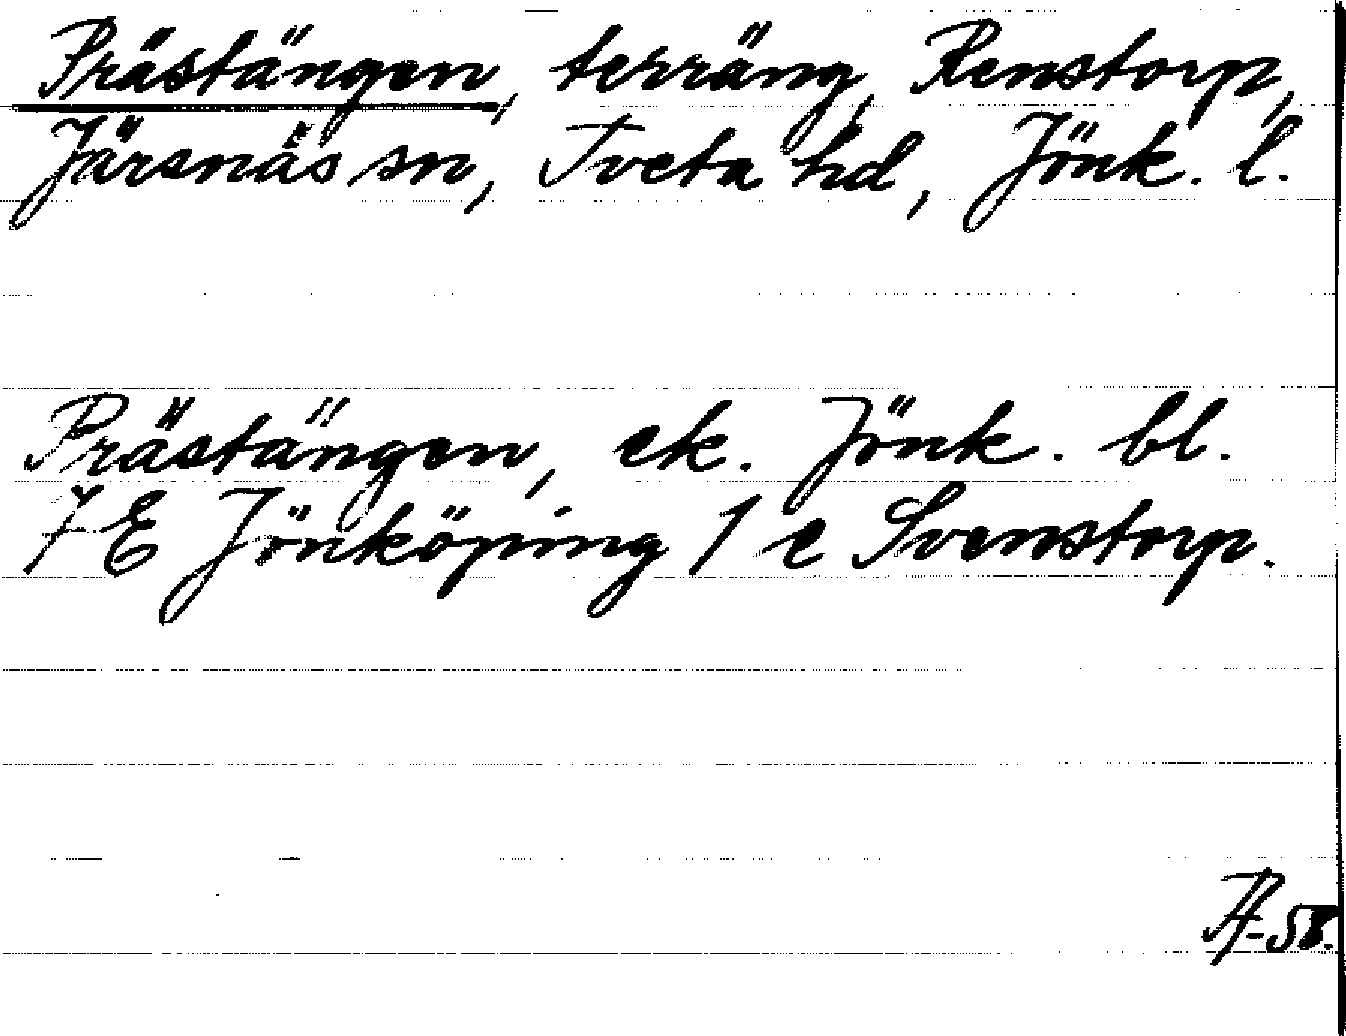 Prästängen, terräng, Renstorp,
Järsnäs sn, Tveta hd, Jönk. l.
Prästängen, ek. Jönk. bl.
7E Jönköping 1 e Svenstorp.